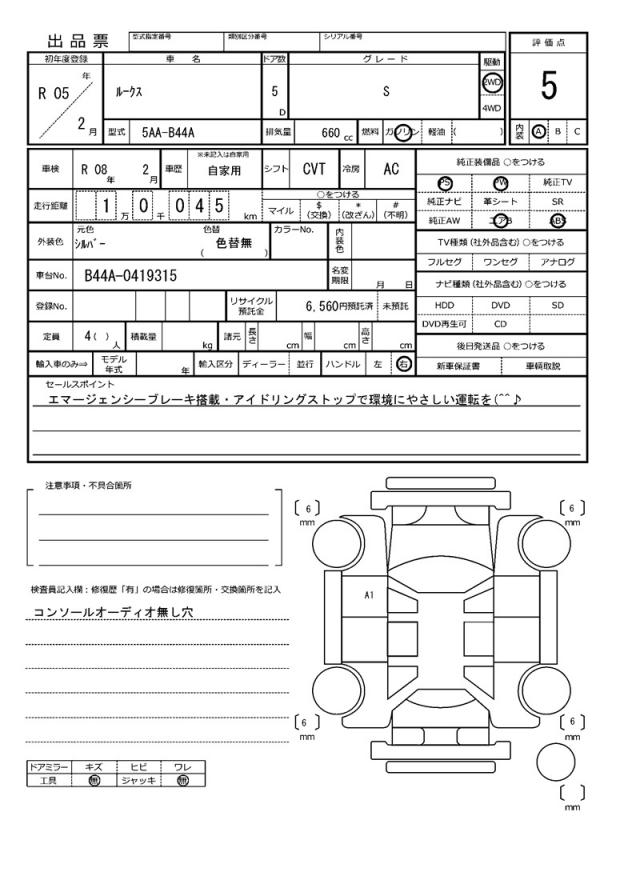 出品票
型式指定番号 類別区分番号 シリアル番号
評価点
5
内装 A B C
初年度登録 車名 ドア数 グレード 駆動
R 05 年 2 月
ルークス 5 D S 2WD
4WD
型式 5AA-B44A 排気量 660 cc 燃料 ガソリン 軽油 ( )
車検 R 08 年 2 月 車歴 ※未記入は自家用 自家用 シフト CVT 冷房 AC
走行距離 1 万 0 千 0 4 5 km
○をつける
マイル $(交換) *(改ざん) #(不明)
外装色 元色 シルバー 色替 色替無 ( ) カラーNo. 内装色
車台No. B44A-0419315 名変期限 月 日
登録No. リサイクル預託金 6,560円預託済 未預託
定員 4( ) 人 積載量 kg 諸元 長さ cm 幅 cm 高さ cm
輸入車のみ⇒ モデル年式 年 輸入区分 ディーラー 並行 ハンドル 左 右
純正装備品 ○をつける
PS PW 純正TV
純正ナビ 革シート SR
純正AW エアB ABS
TV種類(社外品含む)○をつける
フルセグ ワンセグ アナログ
ナビ種類(社外品含む)○をつける
HDD DVD SD
DVD再生可 CD
後日発送品 ○をつける
新車保証書 車輌取説
セールスポイント
エマージェンシーブレーキ搭載・アイドリングストップで環境にやさしい運転を(^^♪
注意事項・不具合箇所
検査員記入欄：修復歴「有」の場合は修復箇所・交換箇所を記入
コンソールオーディオ無し穴
ドアミラー キズ ヒビ ワレ
工具 無 ジャッキ 無
〔 6 〕 mm
〔 6 〕 mm
A1
〔 6 〕 mm
〔 6 〕 mm
〔 〕 mm